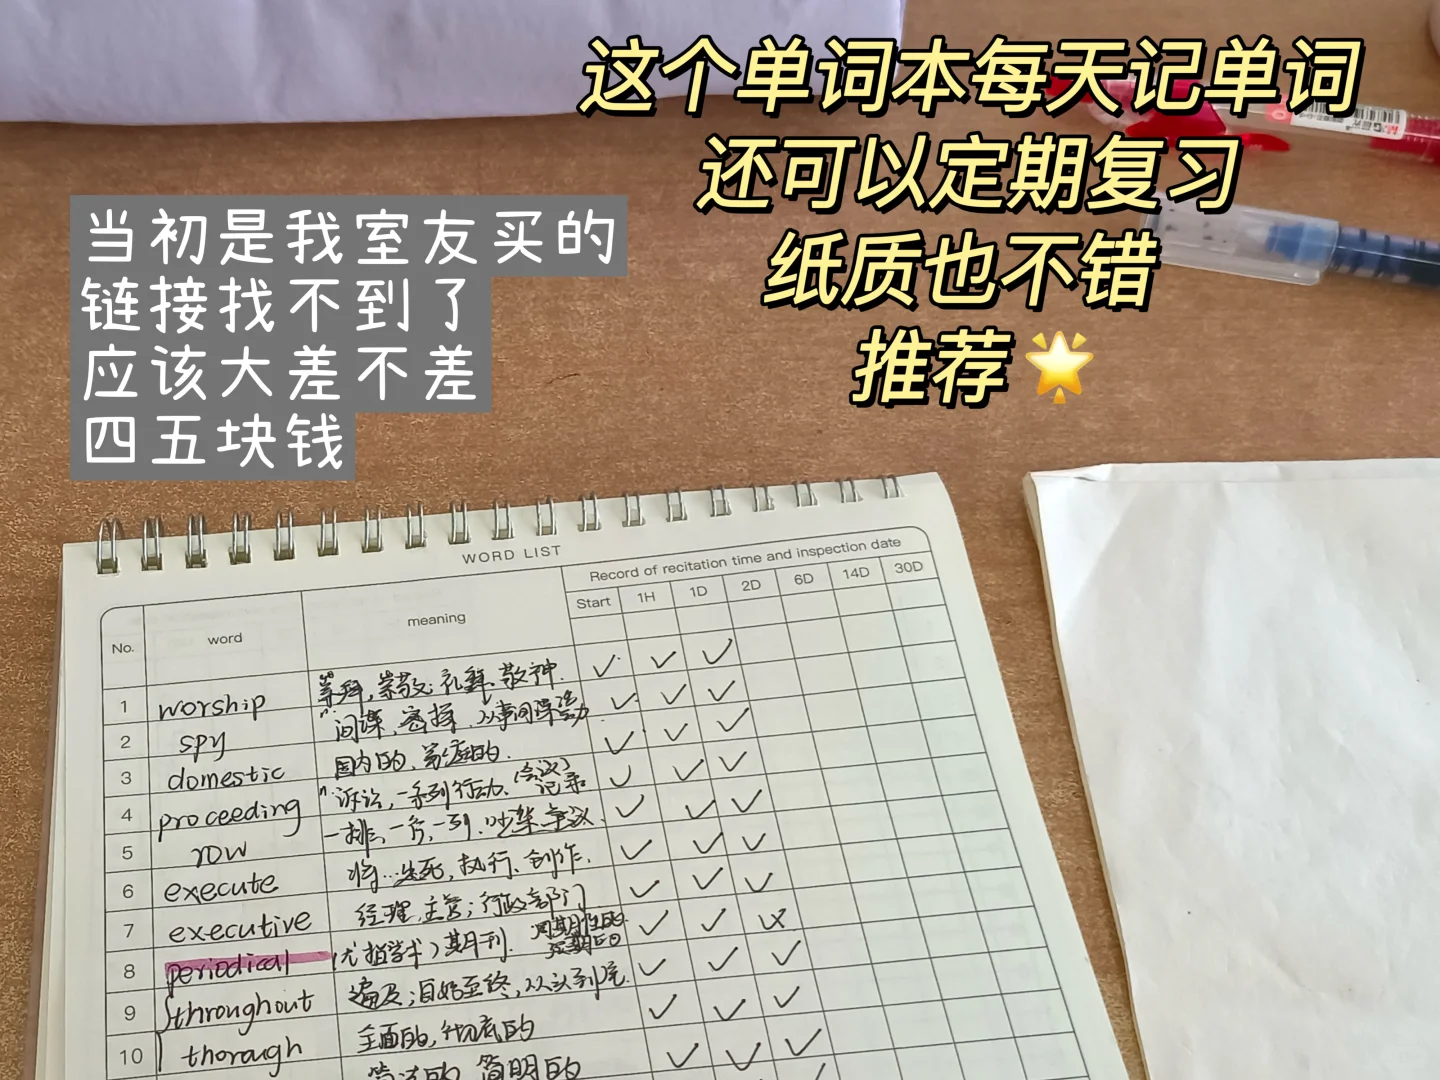 这个单词本每天记单词
还可以定期复习
纸质也不错
推荐🌟
当初是我室友买的
链接找不到了
应该大差不差
四五块钱
WORD LIST
No. word meaning Record of recitation time and inspection date
Start 1H 1D 2D 6D 14D 30D
1 worship 崇拜,崇敬;礼拜,敬神.
2 spy n 间谍,密探.从事间谍活动
3 domestic 国内的,家庭的.
4 proceeding n 诉讼,一系列行动.(会议)记录
5 row 一排,一条,一列.吵架争议.
6 execute 将…处死,执行、创作.
7 executive 经理,主管;行政部门
8 periodical (尤指学术)期刊. 周期性的
9 throughout 遍及;自始至终,从头到尾.
10 thorough 全面的,彻底的
简明的